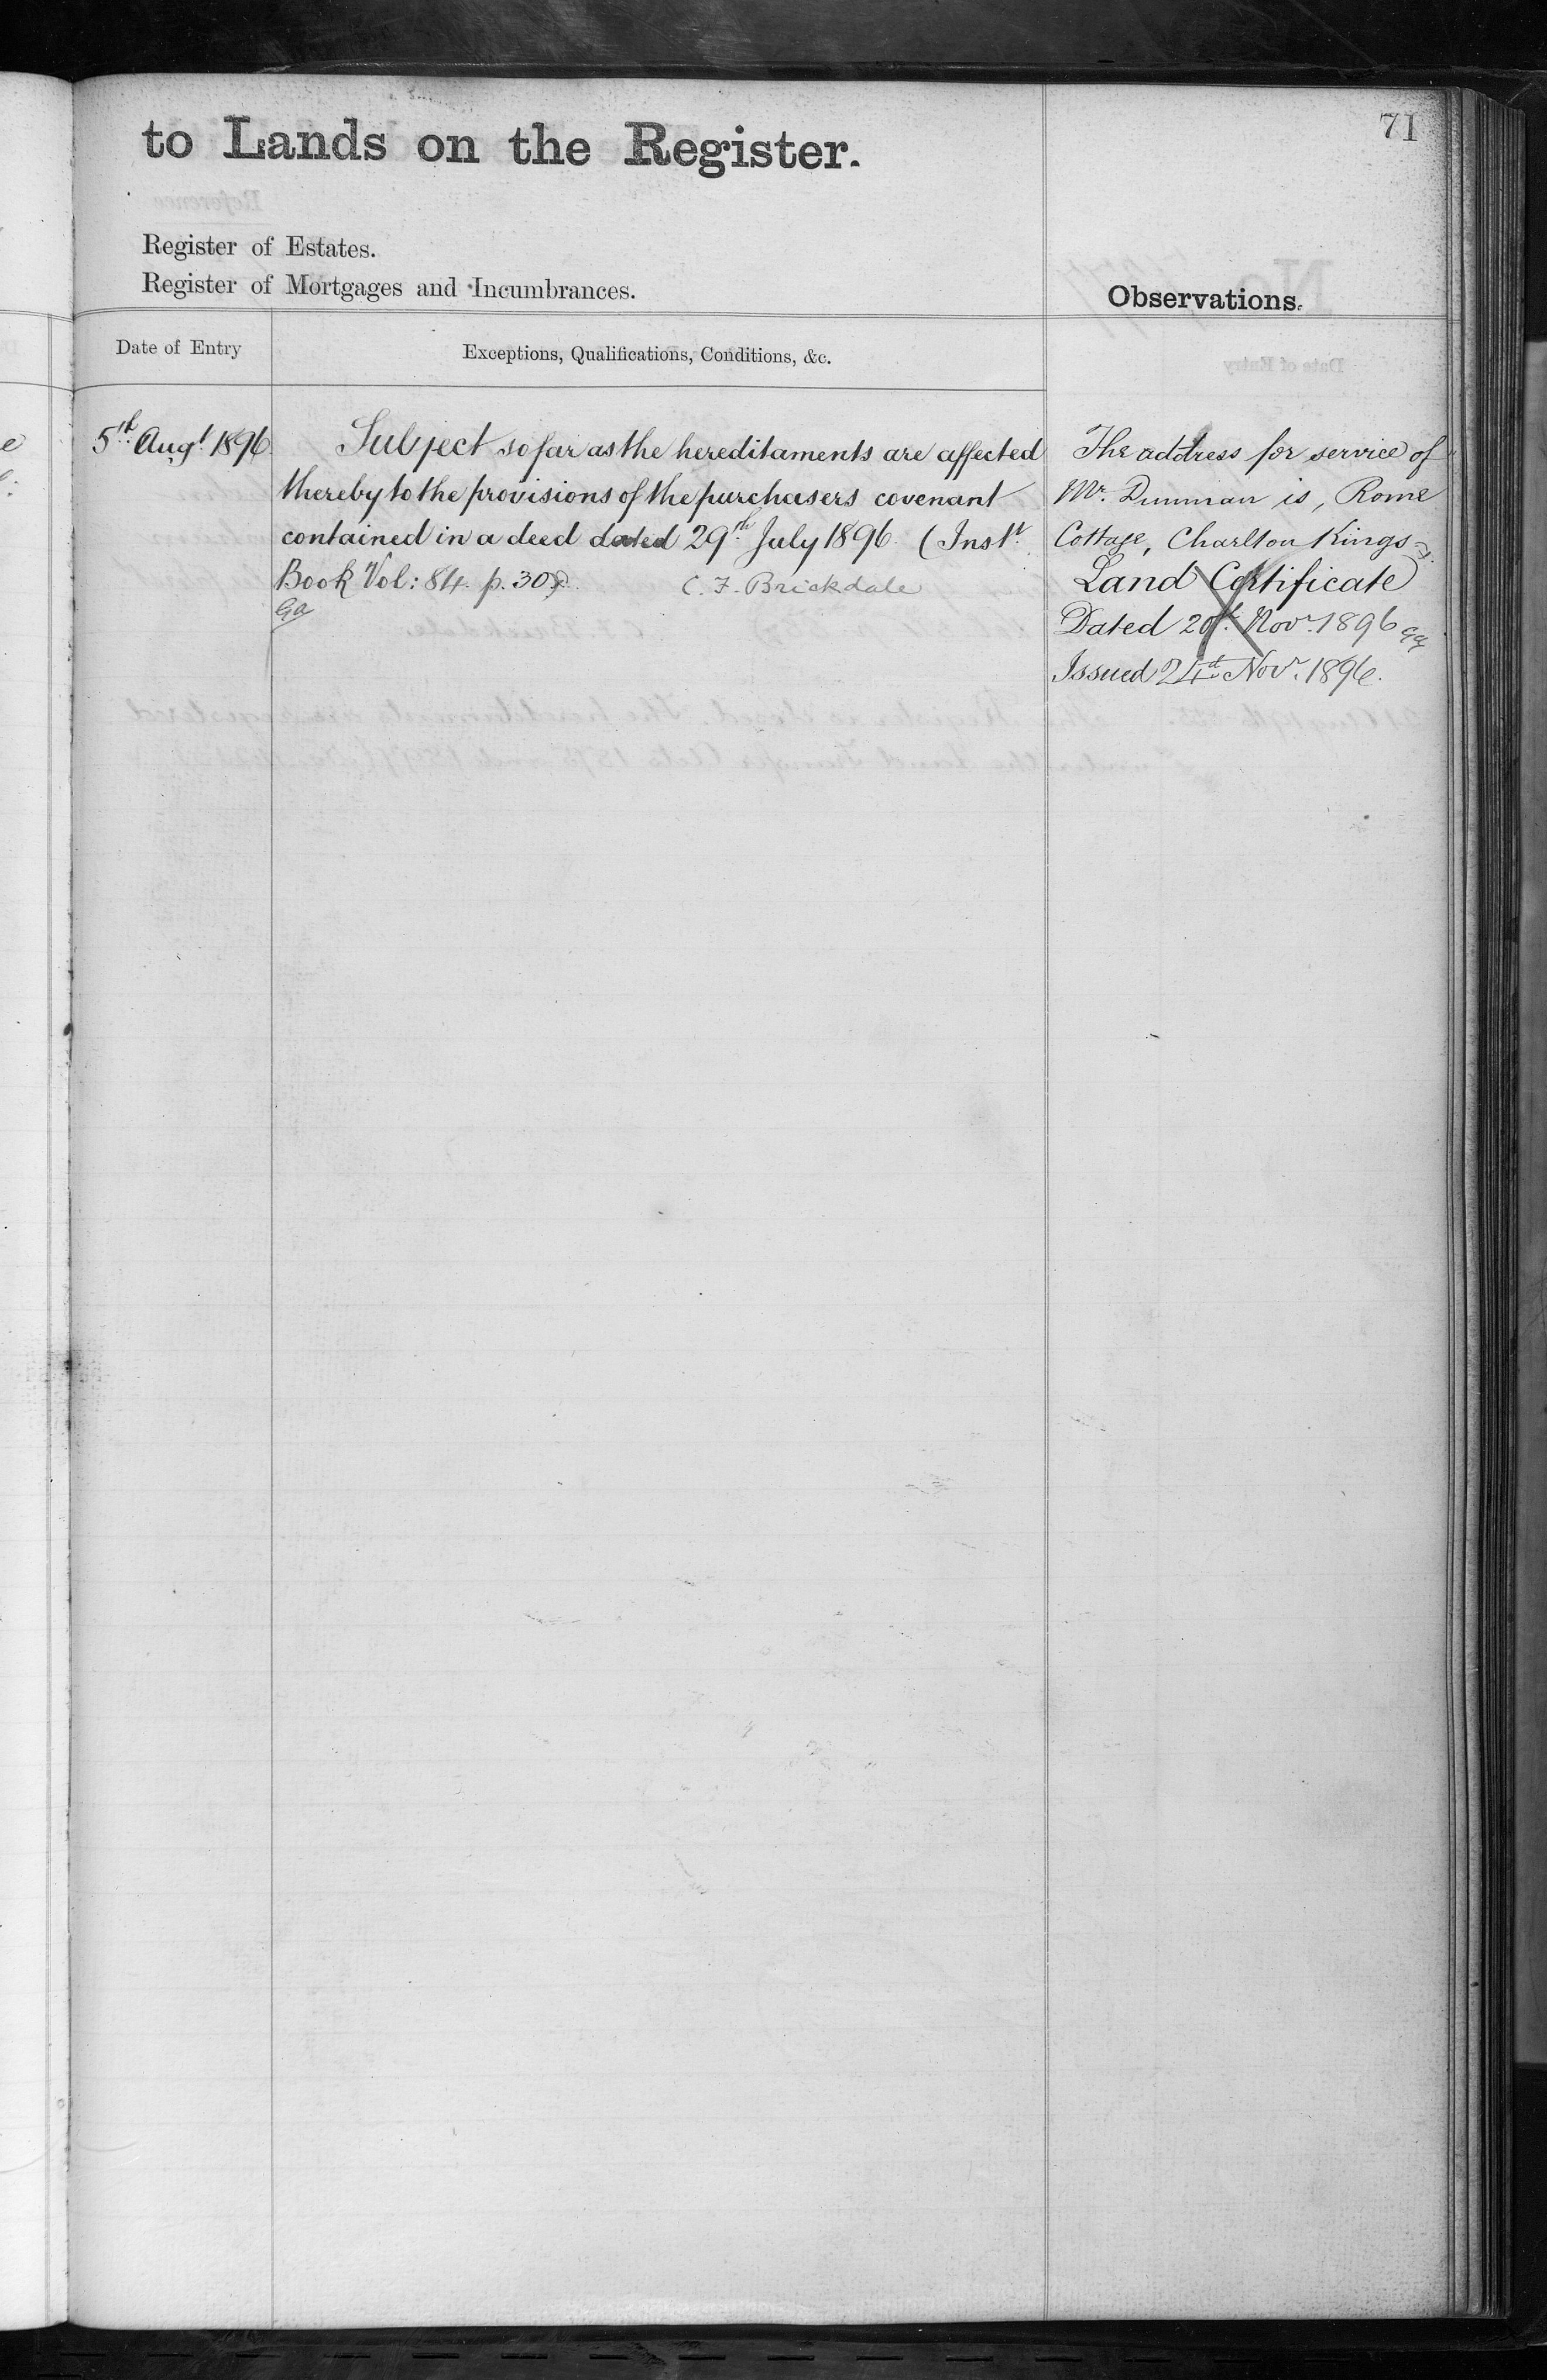 71
to Lands on the Register.
Register of Estates.
Register of Mortgages and Incumbrances.
Observations.
Date of Entry
Exceptions, Qualifications, Conditions, &c.
5th Augt 1896.
Subject so far as the hereditaments are affected
thereby to the provisions of the purchasers covenant
contained in a deed dated 29th July 1896. (Instt
Book Vol: 84. p. 30
C. F. Brickdale
Ga
The address for service of
Mr. Dunman is, Rome
Cottage, Charlton Kings
Land Certificate
Dated 20th Novr. 1896
Issued 24th Novr. 1896.